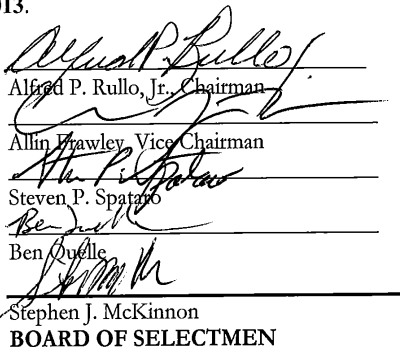 013.
Alfred P. Rullo
Alfred P. Rullo, Jr., Chairman
Allin Frawley, Vice Chairman
Steven P. Spataro
Ben Quelle
Stephen J. McKinnon
BOARD OF SELECTMEN